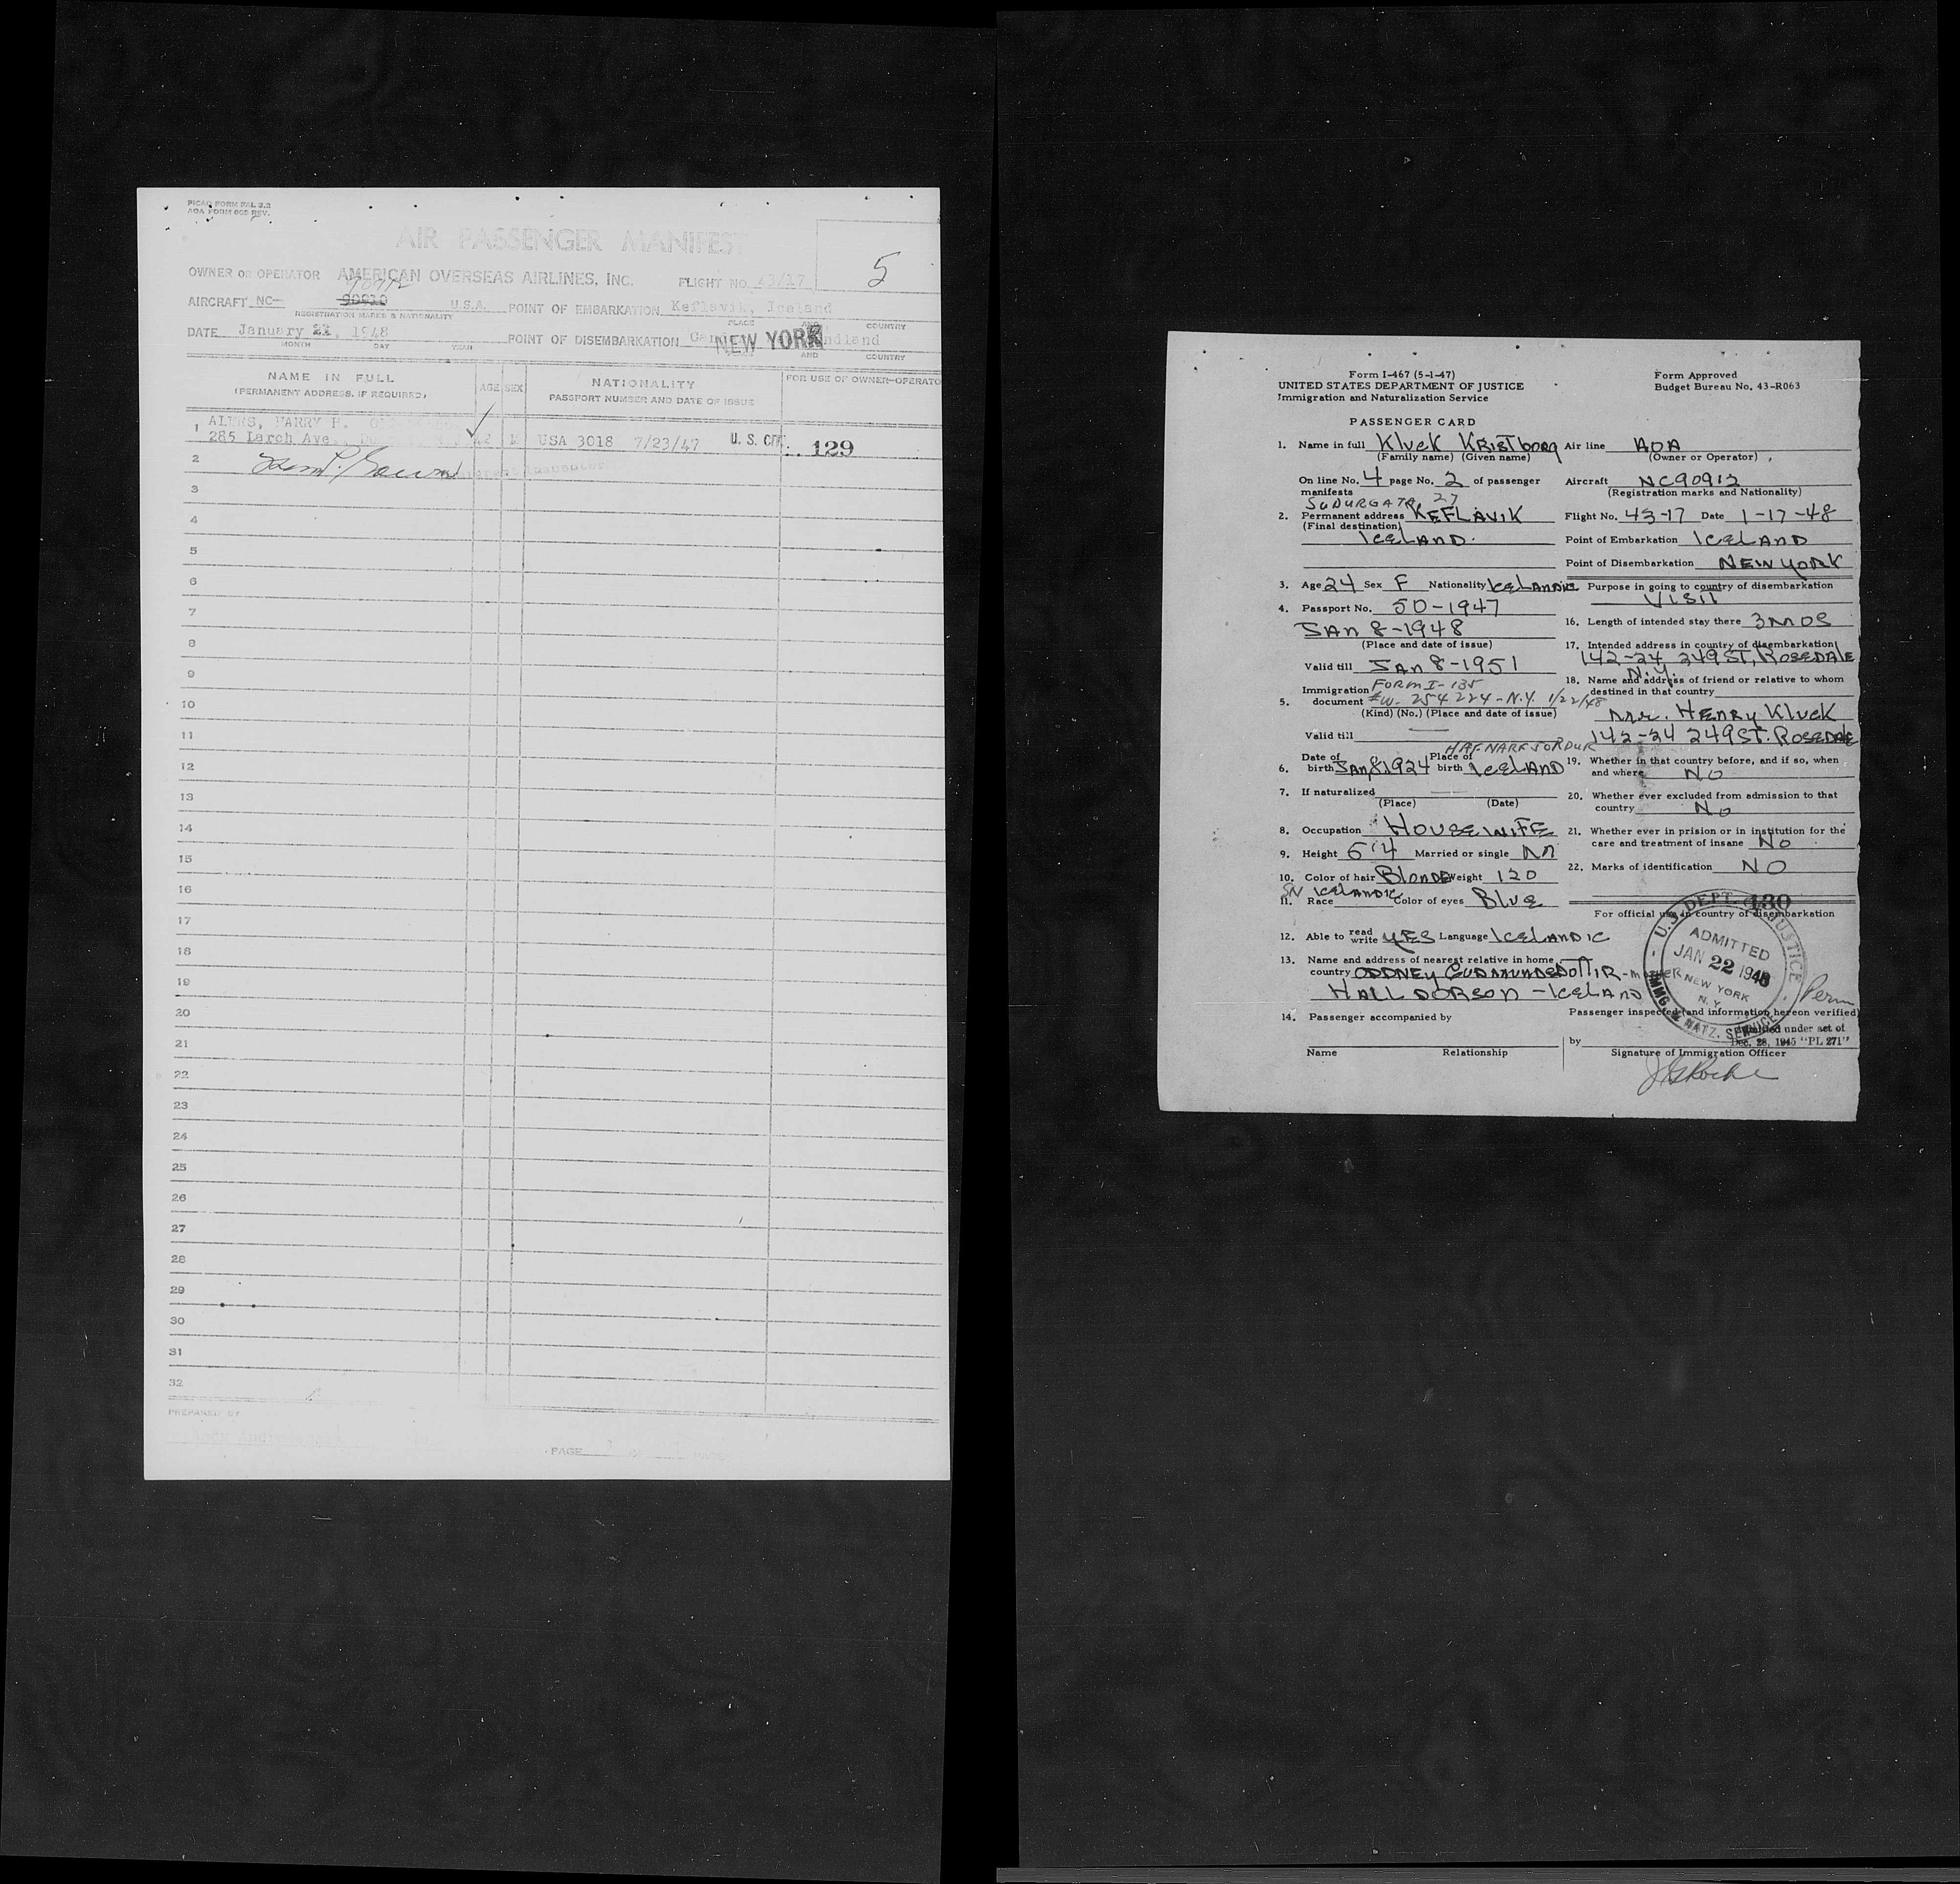 PICAO FORM PAL 2.2
AOA FORM 605 REV.
AIR PASSENGER MANIFEST
5
OWNER OR OPERATOR AMERICAN OVERSEAS AIRLINES, INC. FLIGHT NO. 43/17
90912
AIRCRAFT NC- 90910 U.S.A. POINT OF EMBARKATION Keflavik, Iceland
REGISTRATION MARKS & NATIONALITY PLACE AND COUNTRY
DATE January 21, 1948 POINT OF DISEMBARKATION NEW YORK
MONTH DAY YEAR AND COUNTRY
NAME IN FULL AGE SEX NATIONALITY FOR USE OF OWNER-OPERATO
(PERMANENT ADDRESS, IF REQUIRED) PASSPORT NUMBER AND DATE OF ISSUE
1 HARRY
285 Larch Ave., 42 M USA 3018 7/23/47 U. S. CIT. 129
2
3
4
5
6
7
8
9
10
11
12
13
14
15
16
17
18
19
20
21
22
23
24
25
26
27
28
29
30
31
32
PREPARED BY
PAGE
Form I-467 (5-1-47) Form Approved
UNITED STATES DEPARTMENT OF JUSTICE Budget Bureau No. 43-R063
Immigration and Naturalization Service
PASSENGER CARD
1. Name in full Kluck Kristborg Air line AOA
(Family name) (Given name) (Owner or Operator)
On line No. 4 page No. 2 of passenger Aircraft NC90912
manifests (Registration marks and Nationality)
SUDURGATA 27
2. Permanent address KEFLAVIK Flight No. 43-17 Date 1-17-48
(Final destination)
ICELAND. Point of Embarkation ICELAND
Point of Disembarkation NEW YORK
3. Age 24 Sex F Nationality Icelandic Purpose in going to country of disembarkation
VISIT
4. Passport No. 50-1947
JAN 8-1948 16. Length of intended stay there 3 MOS
(Place and date of issue) 17. Intended address in country of disembarkation
142-24 249 ST, ROSEDALE
Valid till JAN 8-1951 N.Y.
18. Name and address of friend or relative to whom
destined in that country
Immigration FORM I-135
5. document #W-254224-N.Y. 1/22/48
(Kind) (No.) (Place and date of issue) Mr. HENRY Kluck
Valid till 142-24 249 ST. ROSEDALE
HAFNARFJORDUR
6. Date of birth JAN 8 1924 Place of birth ICELAND 19. Whether in that country before, and if so, when
and where NO
7. If naturalized 20. Whether ever excluded from admission to that
(Place) (Date) country No
8. Occupation HOUSEWIFE 21. Whether ever in prision or in institution for the
care and treatment of insane No
9. Height 5'4 Married or single M
22. Marks of identification NO
10. Color of hair BLONDE Weight 120
SN ICELANDIC
11. Race Color of eyes Blue
130
For official use in country of disembarkation
12. Able to read write YES Language ICELANDIC
13. Name and address of nearest relative in home
country ODDNEY GUDMUNDSDOTTIR - mother
HALLDORSON - ICELAND
U.S. DEPT. JUSTICE
ADMITTED
JAN 22 1948
NEW YORK
N. Y.
IMMG. & NATZ. SERVICE
Perm
14. Passenger accompanied by
Passenger inspected (and information hereon verified)
Admitted under act of
Dec. 28, 1945 "PL 271"
by
Name Relationship Signature of Immigration Officer